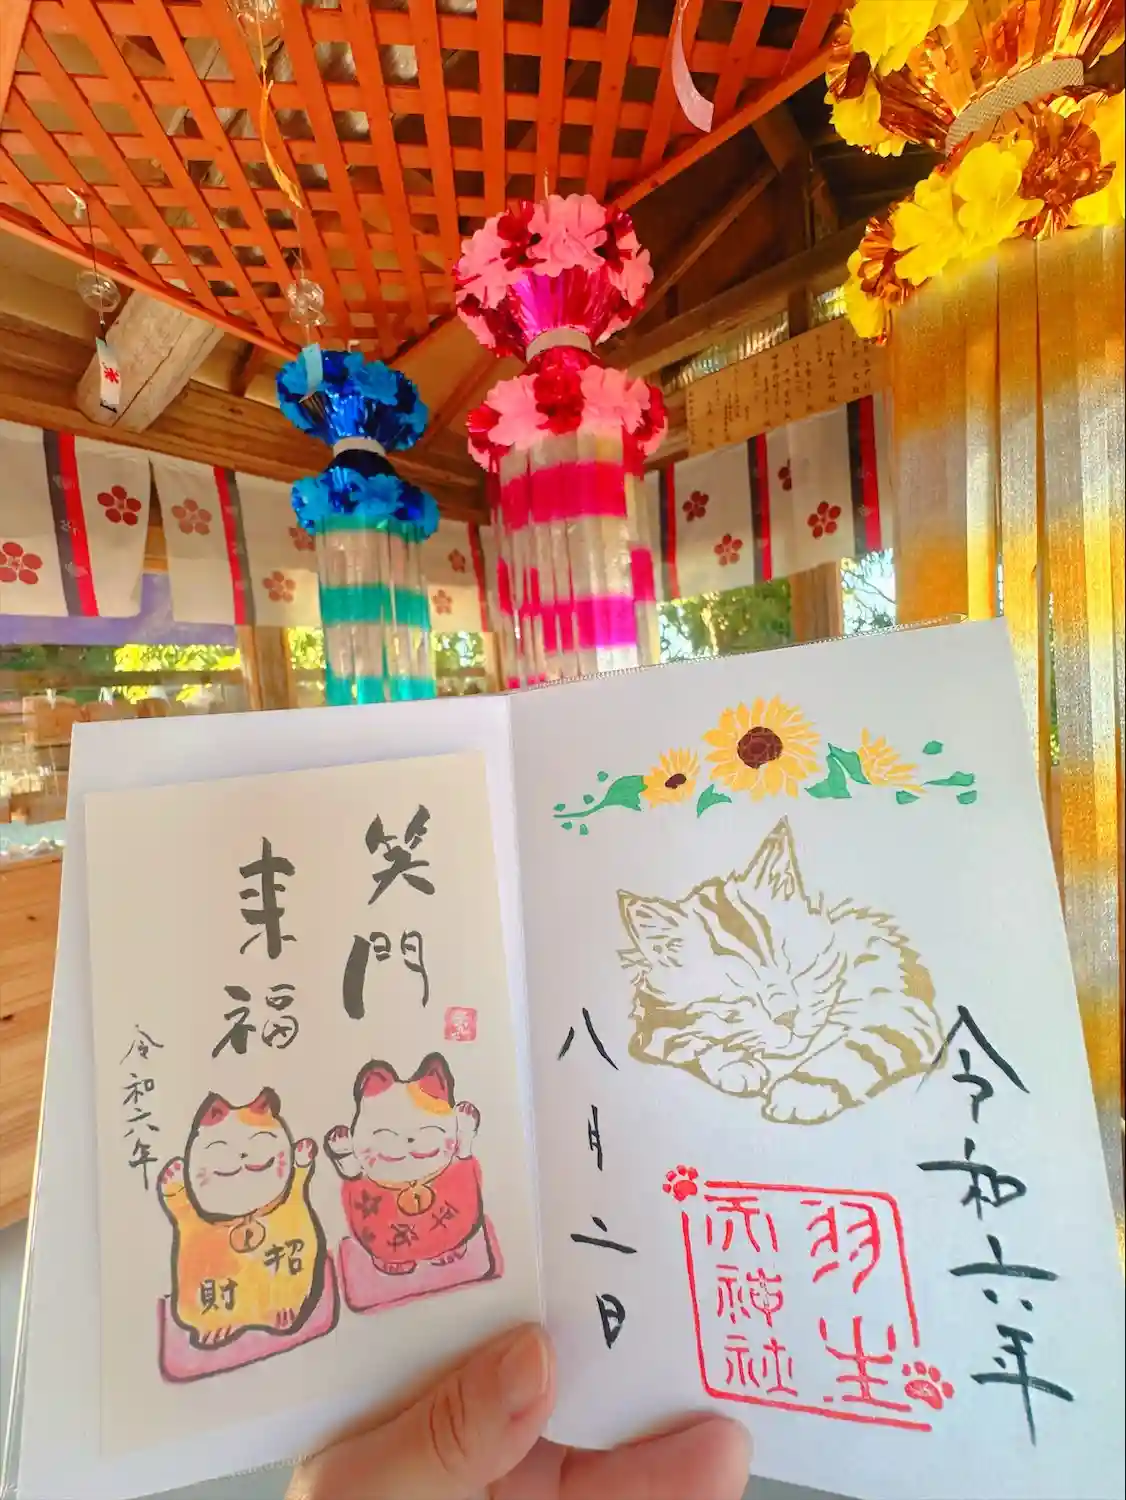 令和六年
羽生
天神社
八月二日
笑門
来福
令和六年
招
財